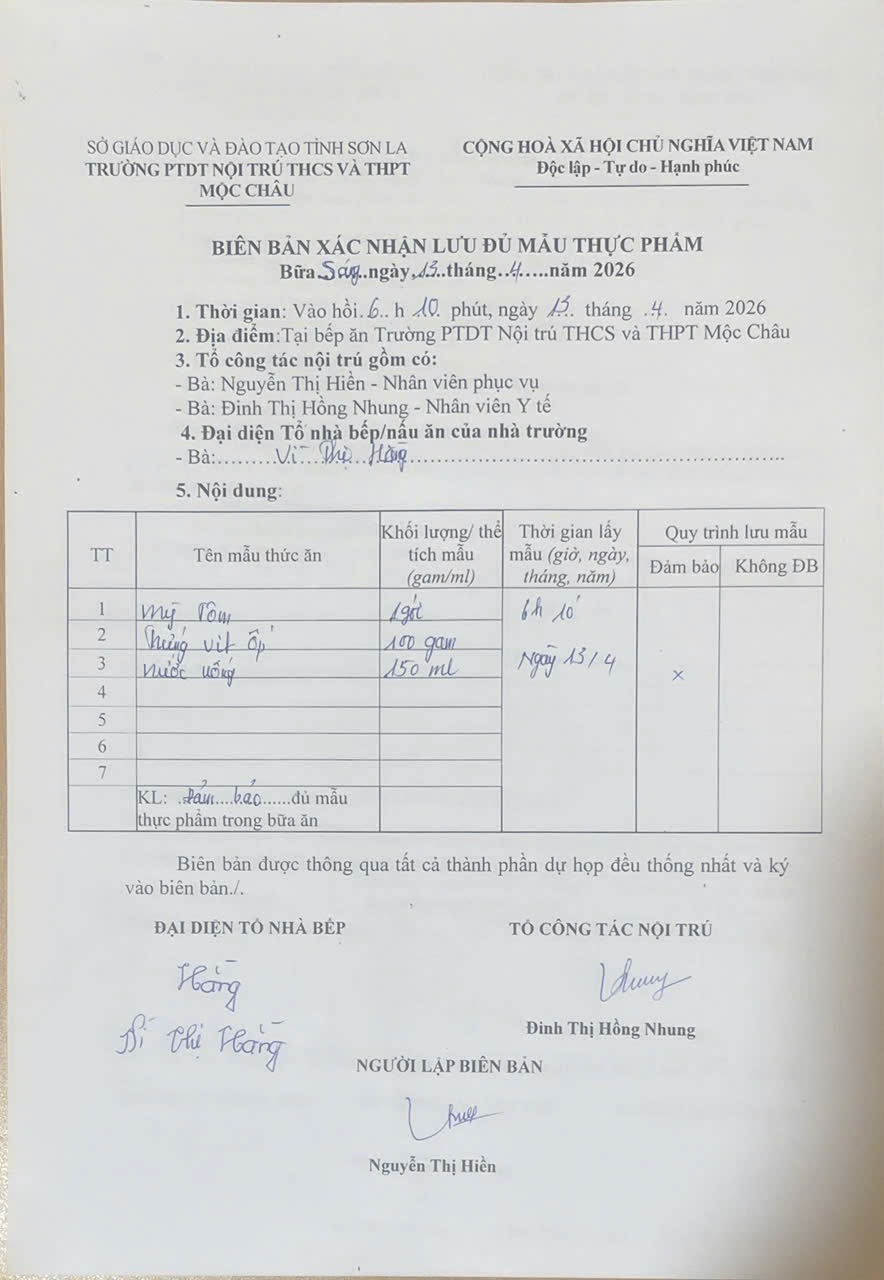 SỞ GIÁO DỤC VÀ ĐÀO TẠO TỈNH SƠN LA
TRƯỜNG PTDT NỘI TRÚ THCS VÀ THPT
MỘC CHÂU
CỘNG HOÀ XÃ HỘI CHỦ NGHĨA VIỆT NAM
Độc lập - Tự do - Hạnh phúc
BIÊN BẢN XÁC NHẬN LƯU ĐỦ MẪU THỰC PHẨM
Bữa Sáng ngày 13 tháng 4 năm 2026
1. Thời gian: Vào hồi 6 h 10 phút, ngày 13 tháng 4 năm 2026
2. Địa điểm:Tại bếp ăn Trường PTDT Nội trú THCS và THPT Mộc Châu
3. Tổ công tác nội trú gồm có:
- Bà: Nguyễn Thị Hiền - Nhân viên phục vụ
- Bà: Đinh Thị Hồng Nhung - Nhân viên Y tế
4. Đại diện Tổ nhà bếp/nấu ăn của nhà trường
- Bà: Vì Thị Hằng
5. Nội dung:
TT Tên mẫu thức ăn Khối lượng/ thể tích mẫu (gam/ml) Thời gian lấy mẫu (giờ, ngày, tháng, năm) Quy trình lưu mẫu
Đảm bảo Không ĐB
1 Mỳ Tôm 1 gói 6h 10'
2 Trứng vịt ốp 100 gam
3 Nước uống 150 ml Ngày 13/4 x
4
5
6
7
KL: Đảm bảo đủ mẫu
thực phẩm trong bữa ăn
Biên bản được thông qua tất cả thành phần dự họp đều thống nhất và ký
vào biên bản./.
ĐẠI DIỆN TỔ NHÀ BẾP
TỔ CÔNG TÁC NỘI TRÚ
Hằng
Nhung
Vì Thị Hằng
Đinh Thị Hồng Nhung
NGƯỜI LẬP BIÊN BẢN
Nguyễn Thị Hiền